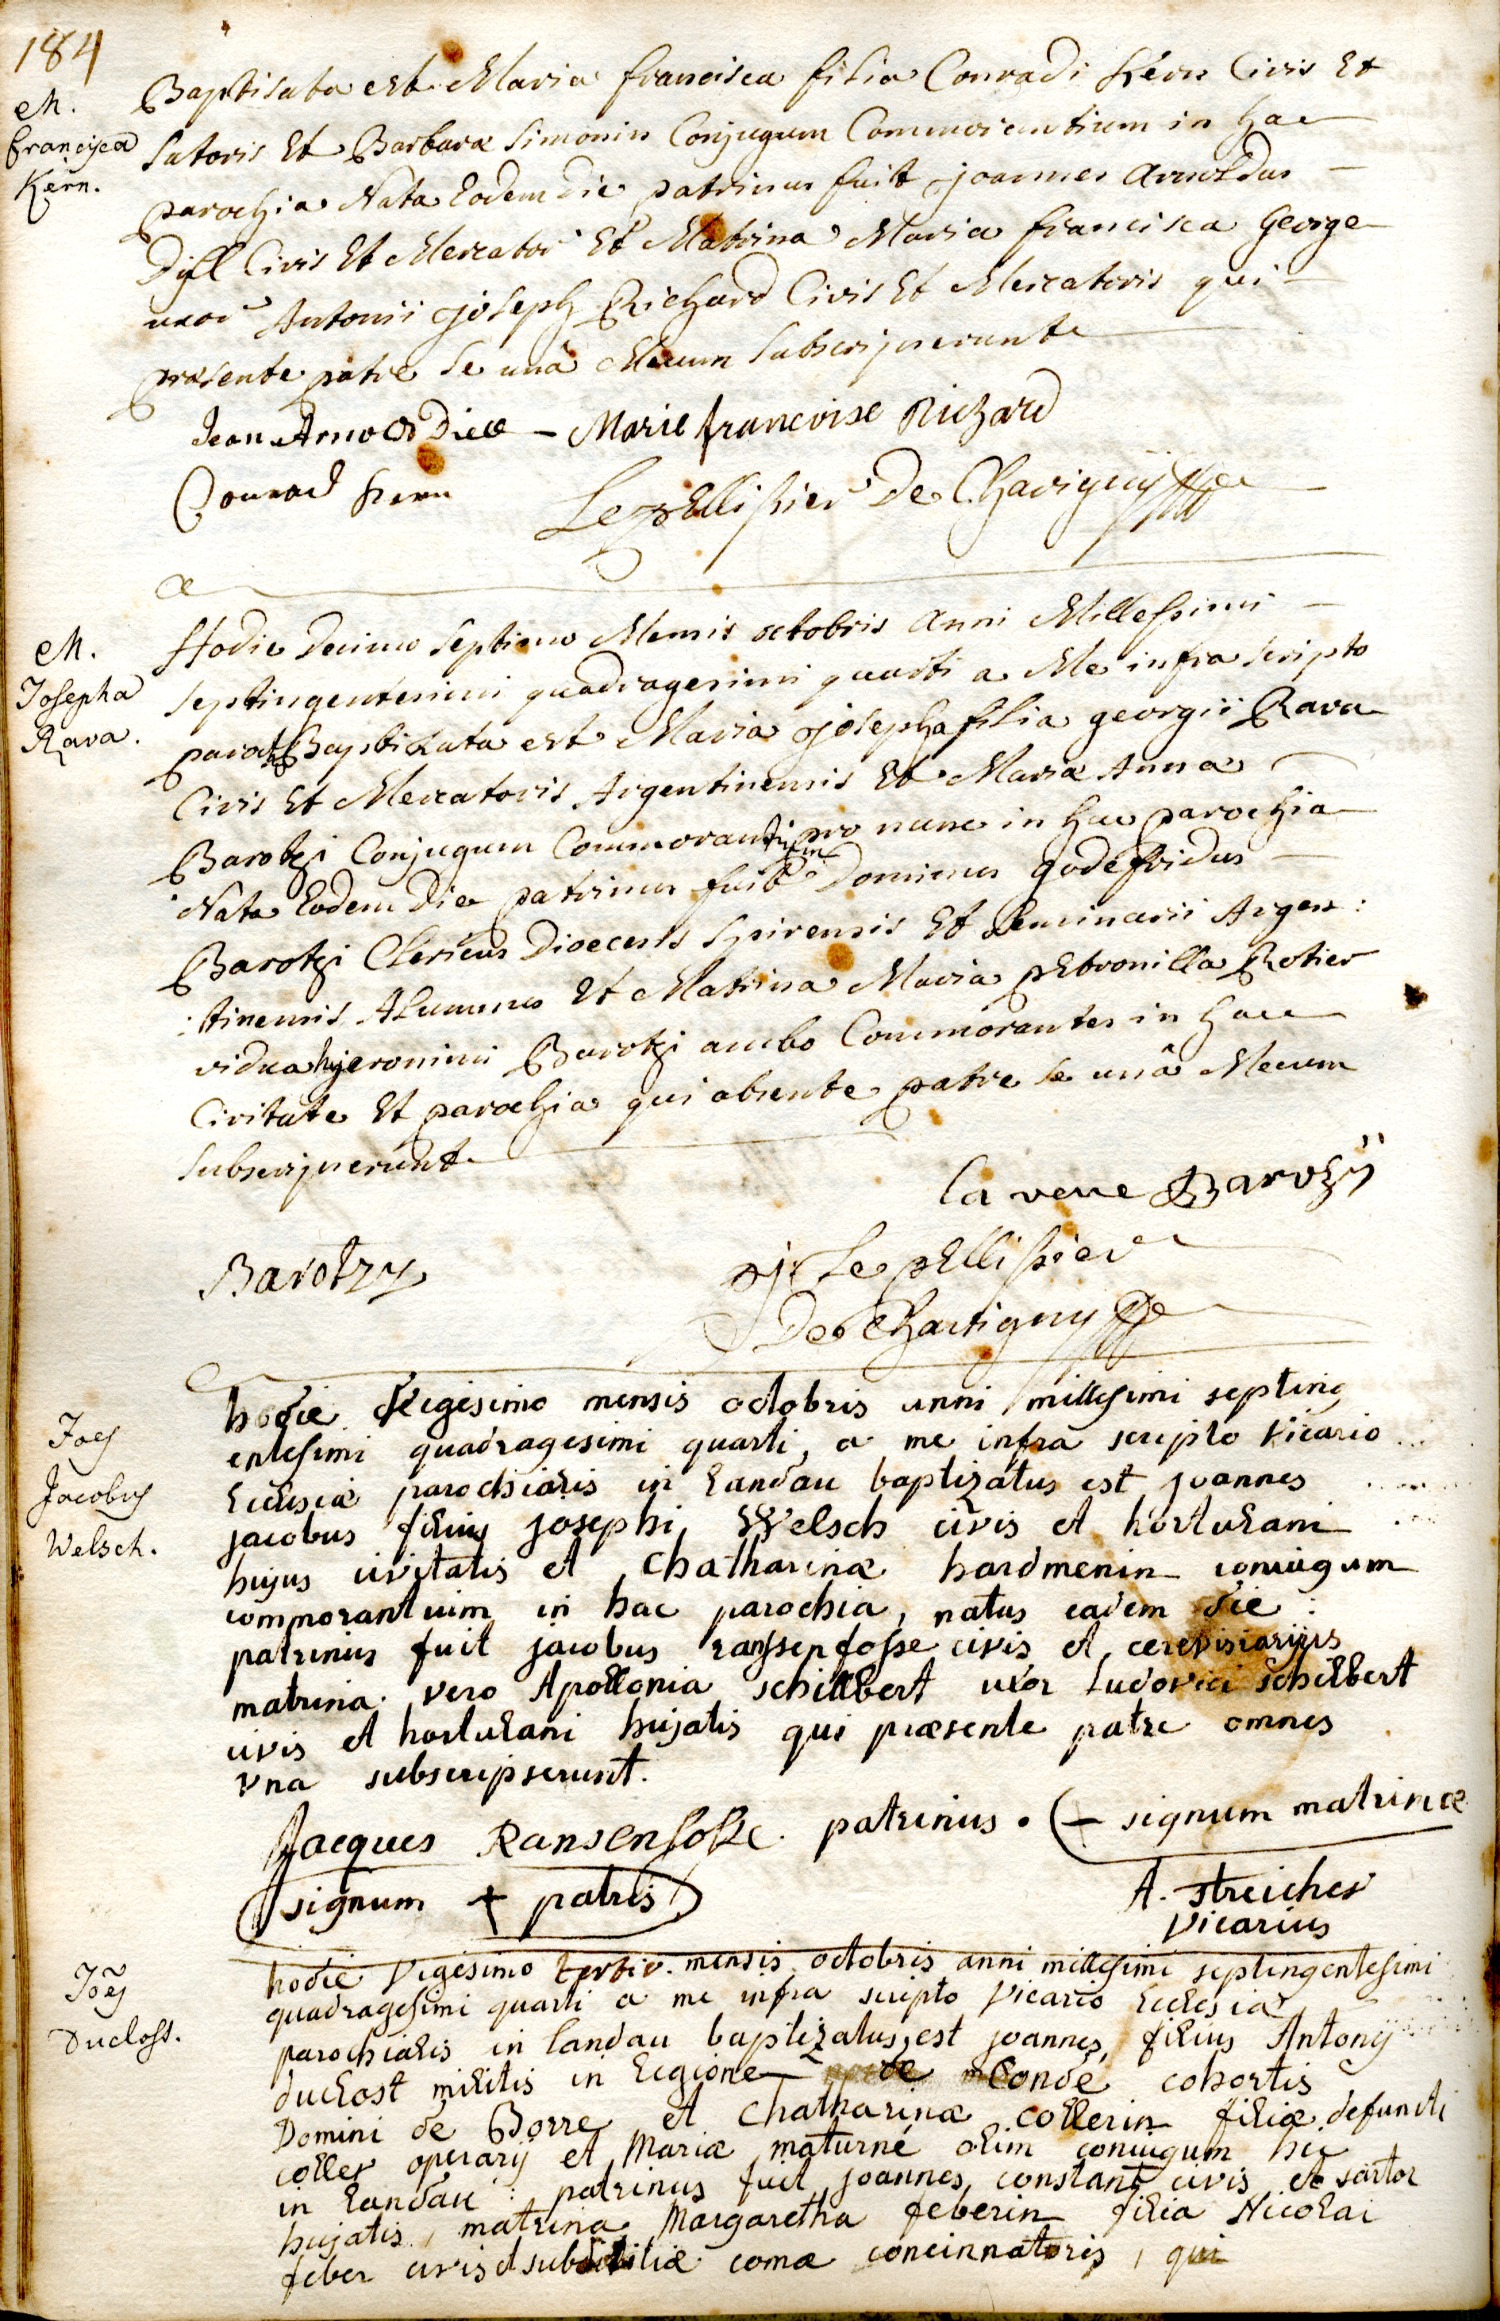 184
M.
Francisca
Kern.
Baptisata est Maria francisca filia Conradi Kern Civis Et
Sutoris Et Barbaræ Simonin Conjugum Commorantium in hac
parochia Nata Eodem die patrinus fuit joannes arnoldus
Dill Civis Et Mercator Et Matrina Maria francisca george
uxor Antonii joseph Richard Civis Et Mercatoris qui
præsente patre se unâ Mecum Subscripserunt
Jean Arnold Dill – Marie francoise Richard
Conrad Kern Le pEllissier De Chavigny
M.
Josepha
Rava.
Hodie Decimo Septimo Mensis octobris anni Millessimi
septingentesimi quadragesimi quarti a Me infra scripto
paroch Baptizata est Maria josepha filia georgii Rava
Civis Et Mercatoris Argentinensis Et Mariæ Anna
Barotzi Conjugum Commorantium pro nunc in hac parochia
Nata Eodem Die patrinus fuit Dominus godefridus
Barotzi Clericus Dioecesis Spirensis Et Seminarii Argen:
:tinensis Alumnus Et Matrina Maria pEtronilla Rotier
vidua hyeronimi Barotzi ambo Commorantes in hac
Civitate Et parochia qui absente patre se unâ Mecum
Subscripserunt
la veve Barozÿ
Barotzy
Le pEllissier
De Chavigny
Joes
Jacobus
Welsch.
hodie Vigesimo mensis octobris anni millesimi septing
entesimi quadragesimi quarti, a me infra scripto Vicario
Ecclesiæ parochialis in Landau baptizatus est joannes
jacobus filius josephi Welsch civis et hortulani
hujus civitatis et Chatharinæ hardmenin coniugum
commorantium in hac parochia, natus eadem die:
patrinus fuit jacobus ranssenfosse civis et cerevisiarijus
matrina vero Apollonia schillbert uxor Ludovici Schillbert
civis et hortulani hujatis qui præsente patre omnes
Vna subscripserunt.
Jacques Ransenfosse patrinus. + signum matrinæ
signum + patris A. Streicher
Vicarius
Joes
Duclost.
hodie Vigesimo tertio mensis octobris anni millesimi septingentesimi
quadragesimi quarti a me infra scripto Vicario Ecclesiæ
parochialis in landau baptizatus est joannes, filius Antonij
duclost militis in legione de Condé cohortis
Domini de Borre et Chatharinæ collerin filiæ defuncti
coller operarij et Mariæ maturné olim coniugum hic
in Landau: patrinus fuit joannes constant civis et sartor
hujatis, matrina Margaretha feberin filia Nicolai
feber civis et comæ concinnatoris, qui